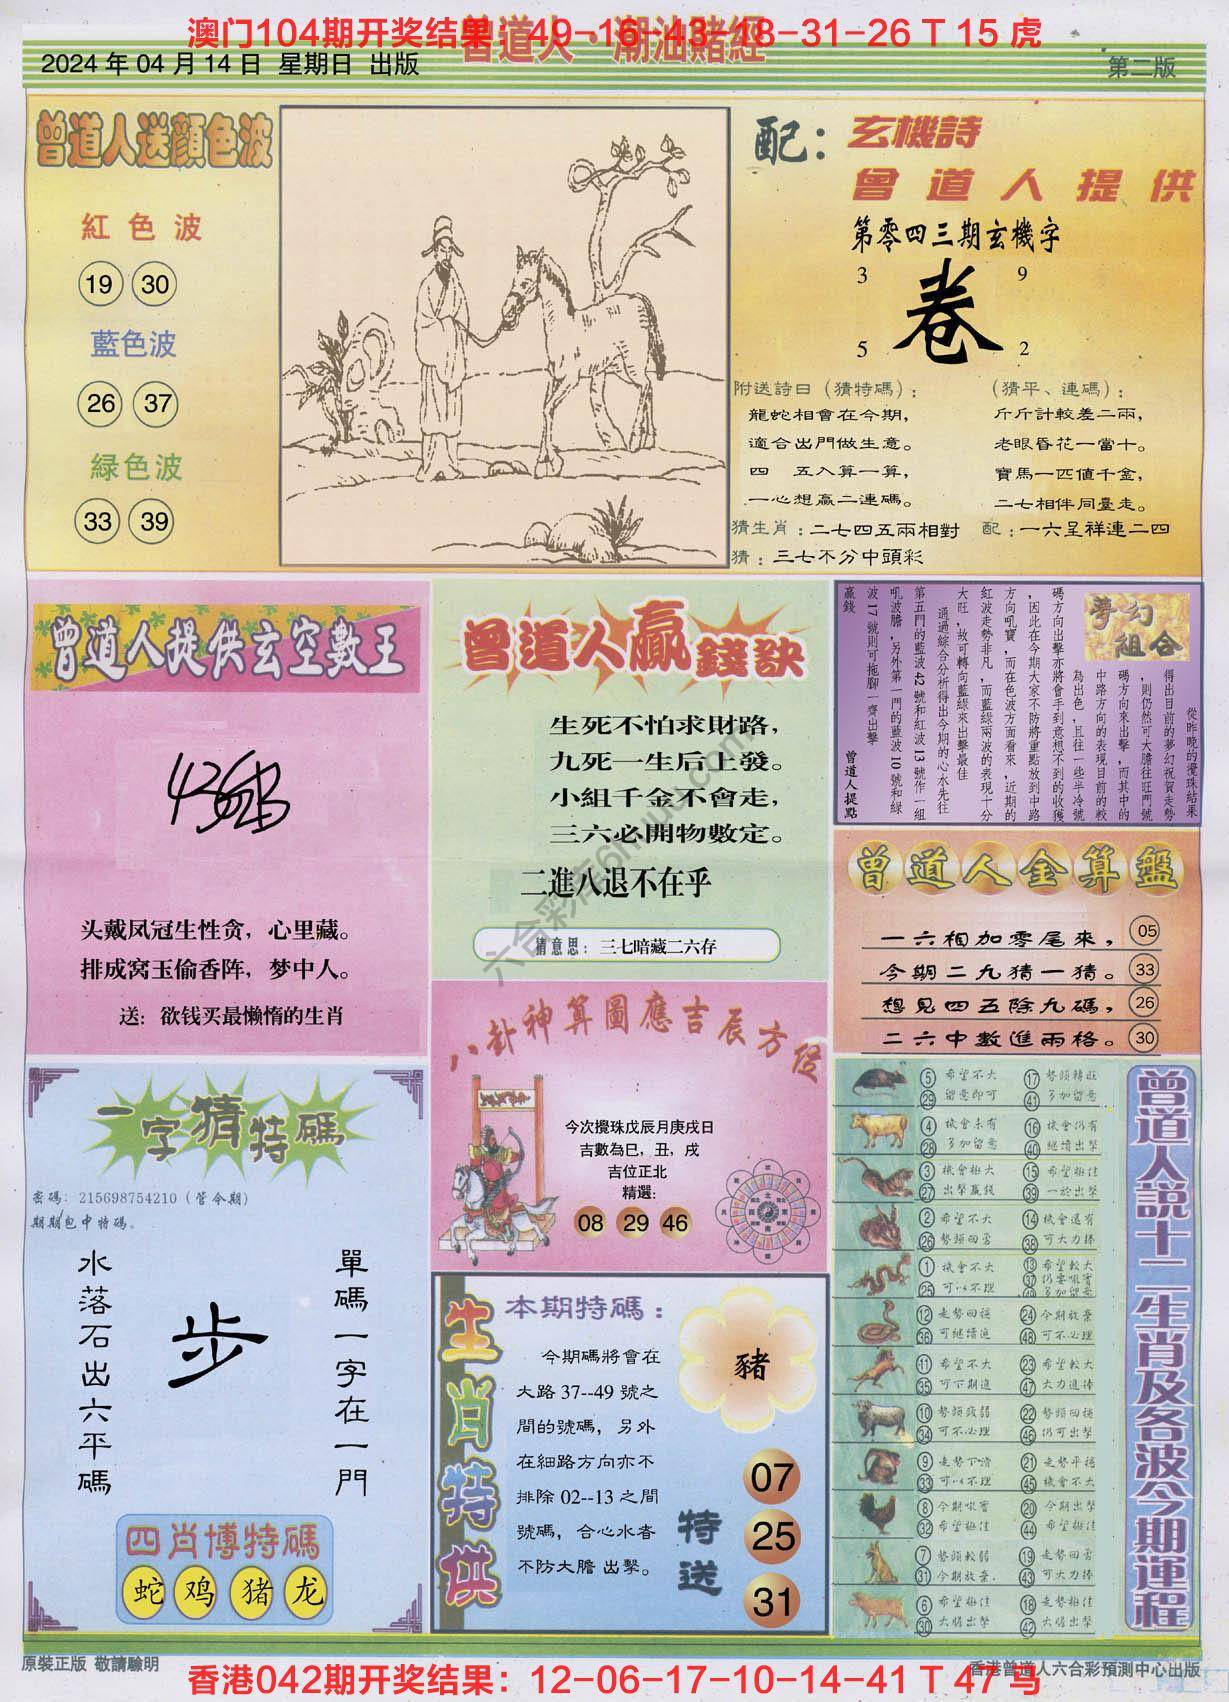 澳门104期开奖结果：49-16-43-18-31-26 T 15 虎
曾道人·潮汕賭經
2024 年 04 月 14 日 星期日 出版
第二版
曾道人送顔色波
紅色波
19 30
藍色波
26 37
緑色波
33 39
配：
玄機詩
曾道人提供
第零四三期玄機字
3 9
卷
5 2
附送詩曰（猜特碼）：
龍蛇相會在今期，
適合出門做生意。
四 五入算一算，
一心想贏二連碼。
（猜平、連碼）：
斤斤計較差二兩，
老眼昏花一當十。
寶馬一匹值千金，
二七相伴同臺走。
猜生肖：二七四五兩相對
配：一六呈祥連二四
猜：三七不分中頭彩
曾道人提供玄空數王
头戴凤冠生性贪，心里藏。
排成窝玉偷香阵，梦中人。
送：欲钱买最懒惰的生肖
曾道人贏錢訣
生死不怕求財路，
九死一生后上發。
小組千金不會走，
三六必開物數定。
二進八退不在乎
猜意思：三七暗藏二六存
夢幻組合
從昨晚的攪珠結果
得出目前的夢幻祝賀走勢
，則仍然可大膽往旺門號
碼方向來出擊，而其中的
中路方向的表現目前的較
為出色，且往一些半冷號
碼方向出擊亦將會手到意想不到的收獲
，因此在今期大家不防將重點放到中路
方向吼寶，而在色波方面看來，近期的
紅波走勢非凡，而藍綠兩波的表現十分
大旺，故可轉向藍綠來出擊最佳
通過綜合分析得出今期的心水先往
第五門的藍波42號和紅波13號作一組
吼波膽，另外第一門的藍波10號和綠
波17號則可拖腳一齊出擊
贏錢
曾道人提點
曾道人金算盤
一六相加零尾來， 05
今期二九猜一猜。 33
想見四五除九碼， 26
二六中數進兩格。 30
八卦神算圖應吉辰方位
今次攪珠戊辰月庚戌日
吉數為巳，丑，戌
吉位正北
精選：
08 29 46
一字猜特碼
密碼：215698754210（管今期）
期期包中特碼。
水落石出六平碼
步
單碼一字在一門
四肖博特碼
蛇 鸡 猪 龙
生肖特供
本期特碼：
今期碼將會在
大路 37--49 號之
間的號碼，另外
在細路方向亦不
排除 02--13 之間
號碼，合心水者
不防大膽 出擊。
豬
特送
07
25
31
曾道人説十二生肖及各波今期運程
5 希望不大 17 勢頭轉旺
29 留意即可 41 多加留意
4 機會未有 16 機會仍有
28 多加留意 40 繼續出擊
3 機會極大 15 希望極佳
27 出擊贏錢 39 一於出擊
2 希望不大 14 機會還有
26 勢頭回勇 38 可大力捧
1 機會不大 13 希望較大
25 可以不理 37
12 走勢回穩 24 今期放棄
36 可繼續追 48 可不必理
11 希望不大 23 希望較大
35 可下期追 47 大力追捧
10 勢頭疲弱 22 勢頭回穩
34 可不必理 46 仍可出擊
9 走勢下滑 21 走勢平穩
33 可以不理 45 機會不大
8 今期吼實 20 今期出擊
32 希望極佳 44 希望極佳
7 勢頭較弱 19 走勢回勇
31 今期放棄. 43 可大力捧
6 希望極佳 18 走勢極佳
30 大膽出擊 42 大膽出擊
六合彩库6huuu.com
原裝正版 敬請驗明
香港曾道人六合彩預測中心出版
香港042期开奖结果：12-06-17-10-14-41 T 47 马